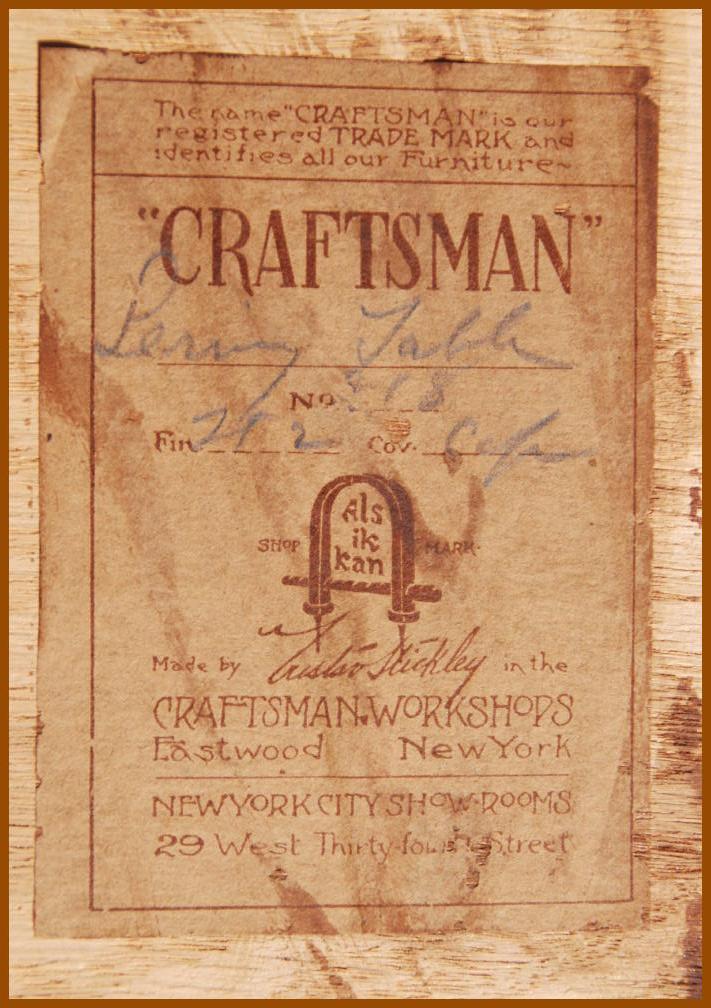 The name "CRAFTSMAN" is our
registered TRADE MARK and
identifies all our Furniture~
"CRAFTSMAN"
Table
No. 318
Fin. Cov.
SHOP Als ik kan MARK.
Made by Gustav Stickley in the
CRAFTSMAN.WORKSHOPS
Eastwood New York
NEW YORK CITY SHOW-ROOMS
29 West Thirty-fourth Street